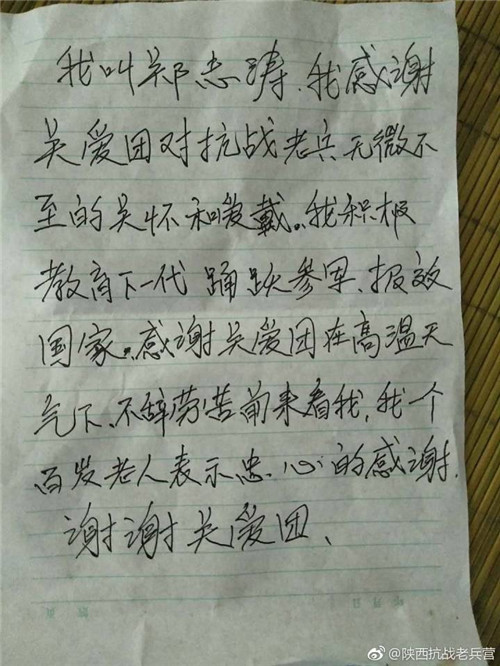 我叫郑志涛.我感谢
关爱团对抗战老兵无微不
至的关怀和爱戴。我积极
教育下一代踊跃参军、报效
国家。感谢关爱团在高温天
气下、不辞劳苦前来看我,我个
百发老人表示忠.心的感谢.
谢谢关爱团、
@陕西抗战老兵营